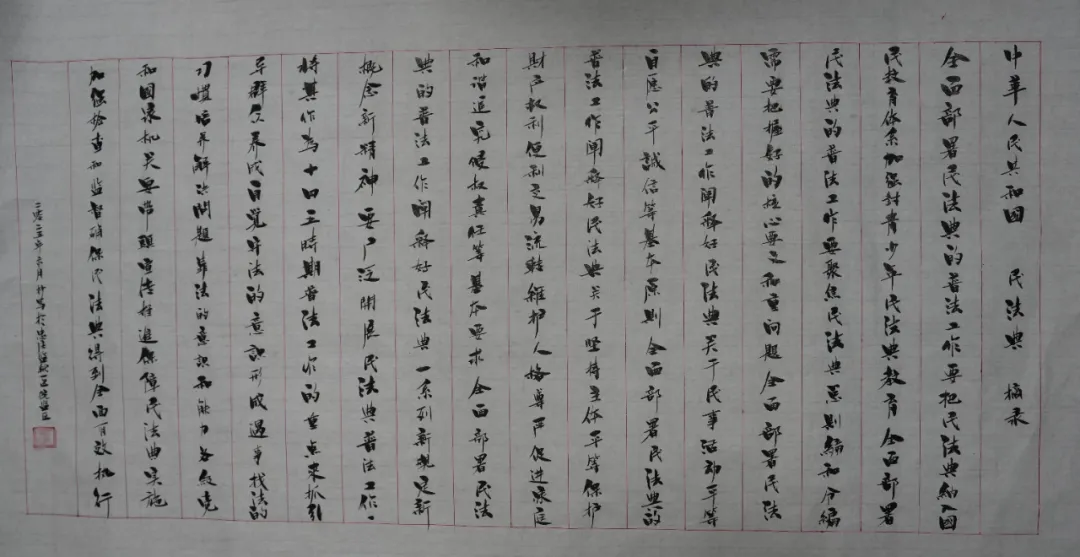 中华人民共和國 民法典 摘录
全面部署民法典的普法工作要把民法典纳入國
民教育体系加强对青少年民法典教育全面部署
民法典的普法工作要聚焦民法典总则编和分编
需要把握好的核心要义和重问题全面部署民法
典的普法工作阐释好民法典关于民事活动平等
自愿公平誠信等基本原则全面部署民法典的
普法工作阐释好民法典关于坚持主体平等保护
财产权利便利交易流转维护人格尊严促进家庭
和谐追究侵权责任等基本要求全面部署民法
典的普法工作阐释好民法典一系列新规定新
概念新精神要广泛開展民法典普法工作、
将其作为十四五時期普法工作的重点来抓引
导群众养成自觉守法的意识形成遇事找法的
习惯培养解决问题靠法的意识和能力各级党
和国家机关要带頭宣传推進保障民法典实施
加强检查和监督确保民法典得到全面有效执行
二零二五年六月